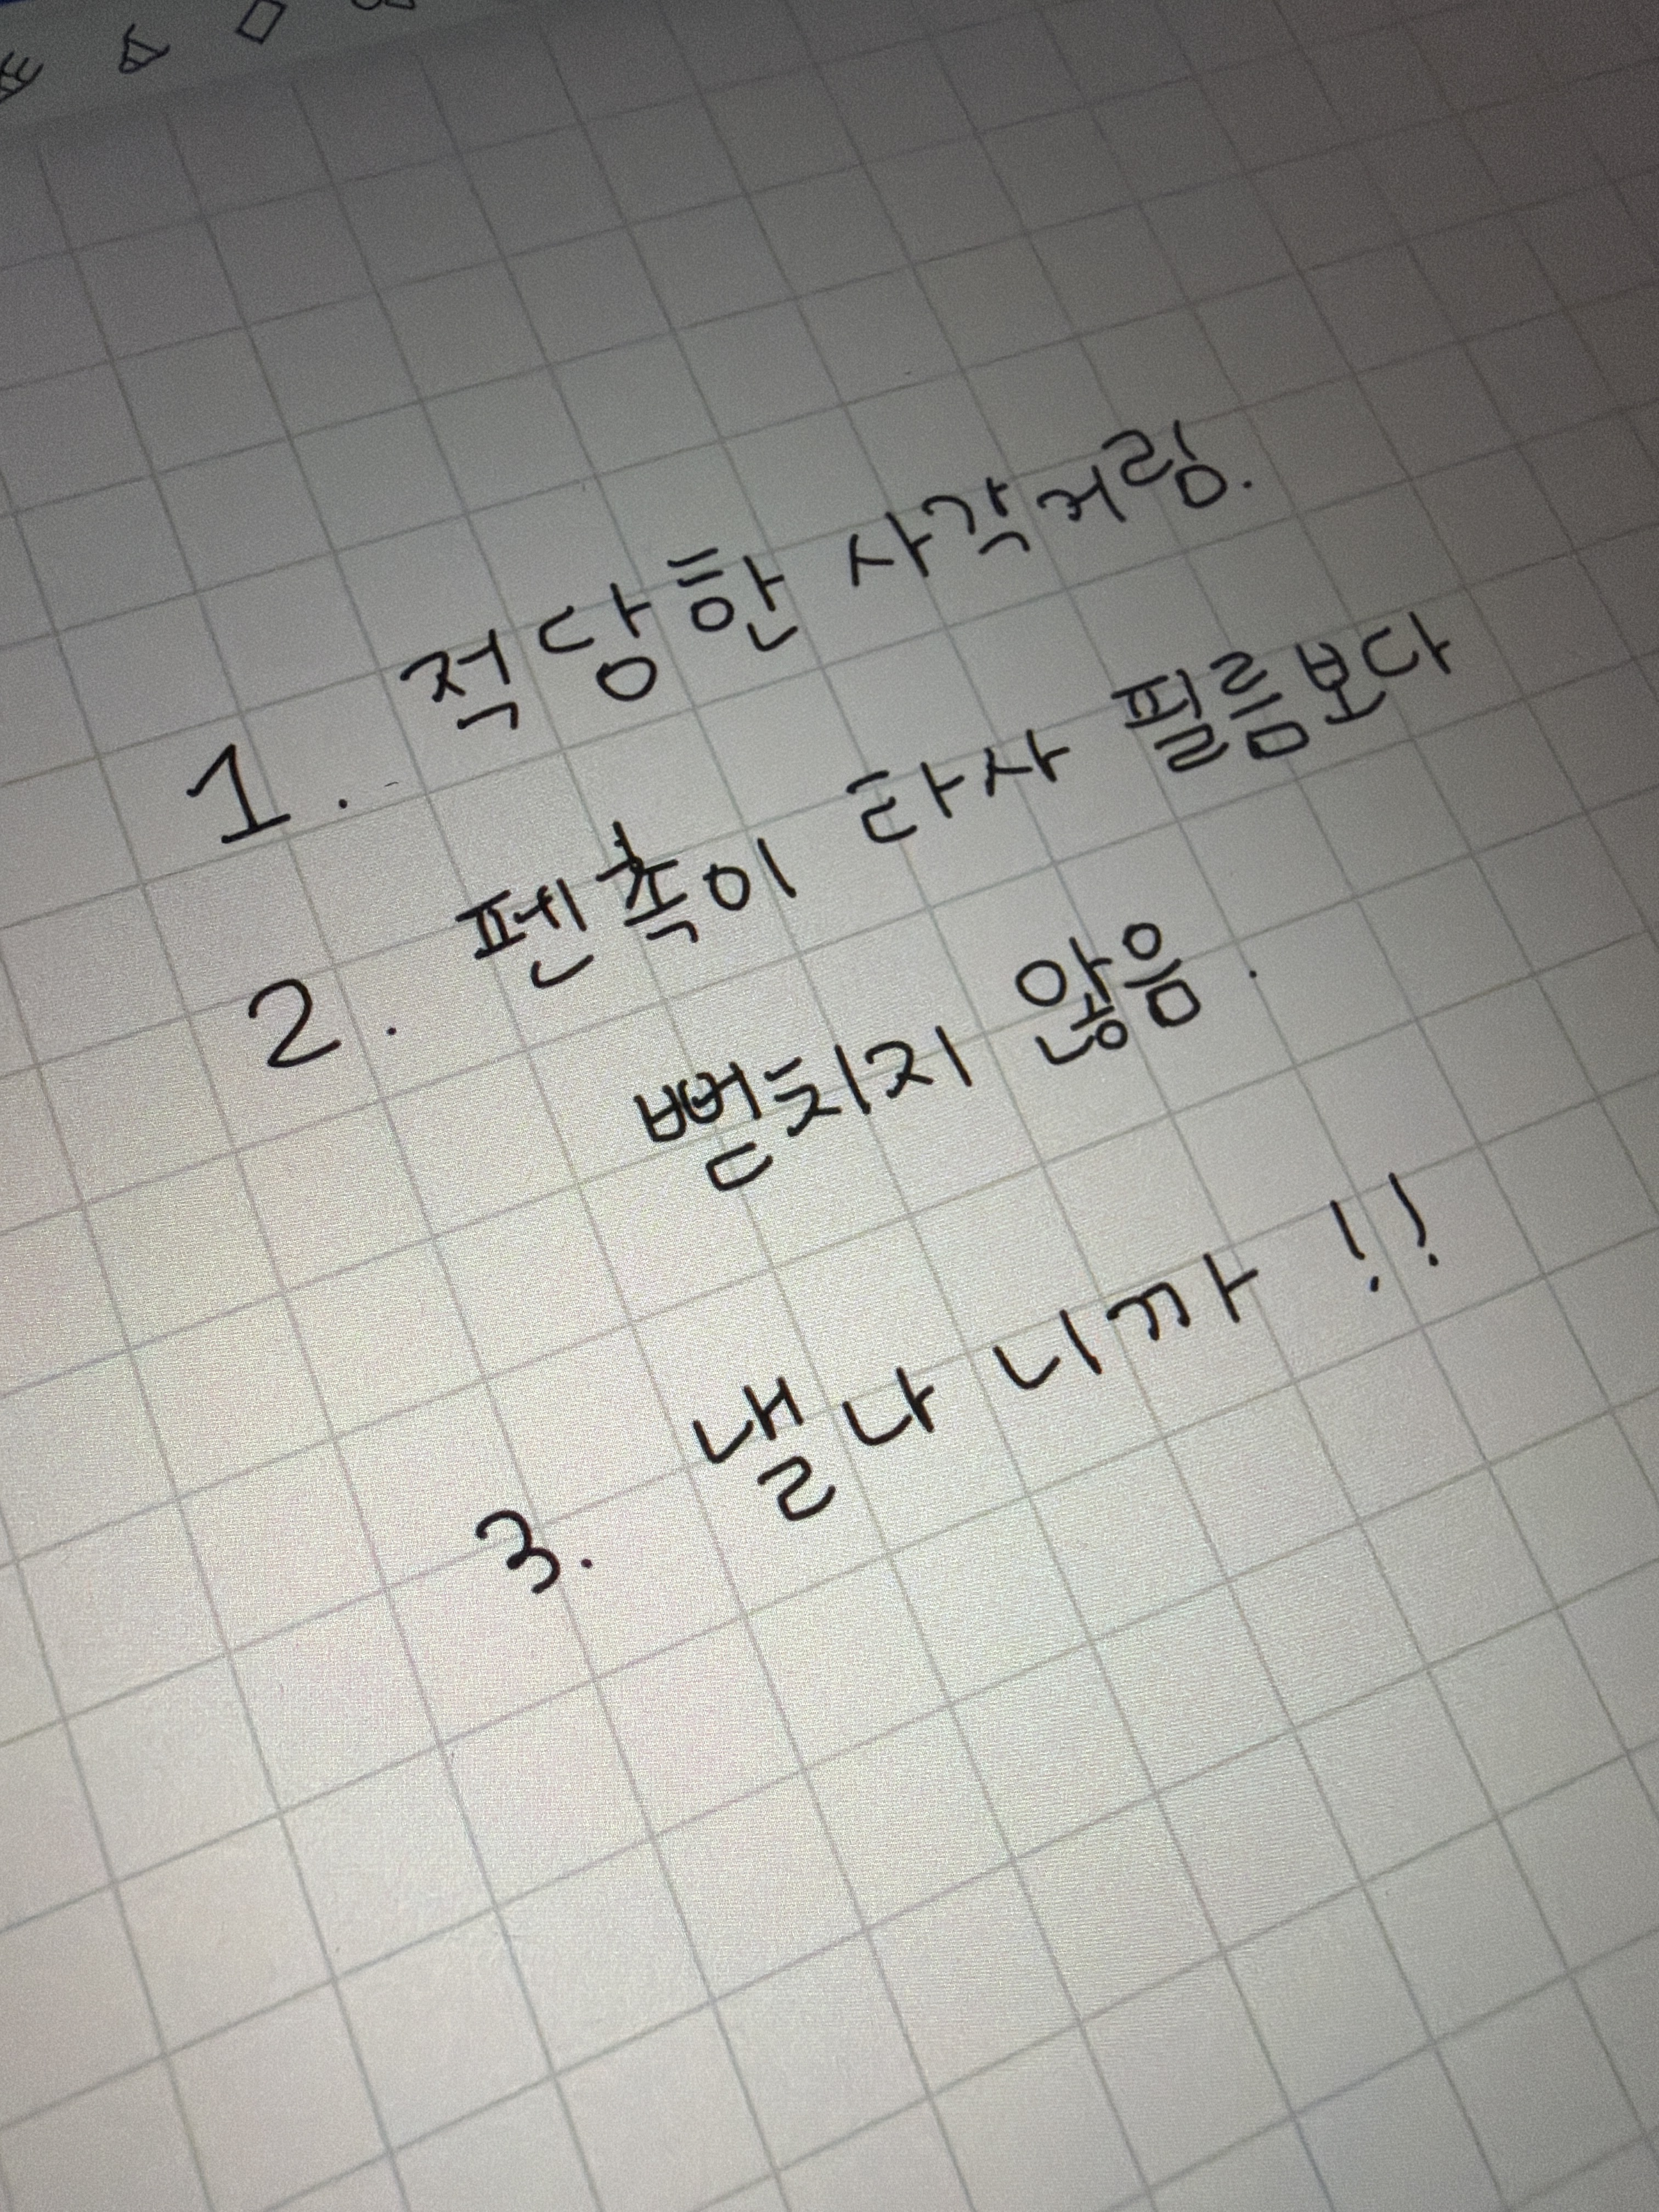 1. 적당한 사각거림.
2. 펜촉이 타사 필름보다
뻗치지 않음.
3. 낼나니까!!